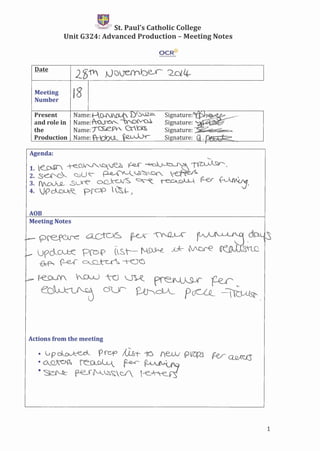 St. Paul's Catholic College
Unit G324: Advanced Production – Meeting Notes
OCR
Date
28th November 2014
Meeting Number
18
Present and role in the Production
Name: Hannah Signature:
Name: Aaron Signature:
Name: Joseph Signature:
Name: Signature:
Agenda:
1. learn techniques for Trailer.
2. send out permission letters
3. Make sure actors are ready for filming.
4. Update prop list.
AOB
Meeting Notes
- prepare actors for their days
- update prop list - Make it more realistic
for actors too
- learn how to use premier for
our piece - Trailer
Actions from the meeting
• updated prop list to new props for actors
• actors ready for filming
• sent permission letters
1